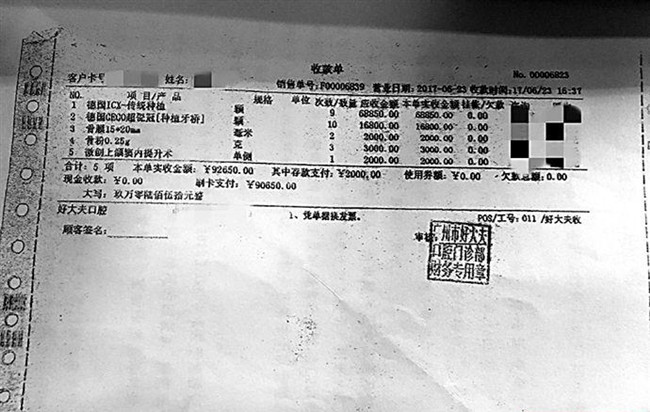 收款单
客户卡号 姓名: No. 00006823
销售单号:F00006839 营业日期:2017-06-23 收款时间:17/06/23 16:37
NO. 项目/产品 规格 单位 次数/数量 应收金额 本单实收金额 挂帐/欠款
1 德国ICX-传统种植 颗 9 68850.00 68850.00 0.00
2 德国CECO超瓷冠[种植牙桥] 颗 10 16800.00 16800.00 0.00
3 骨膜15*20mm 毫米 2 2000.00 2000.00 0.00
4 骨粉0.25g 克 3 3000.00 3000.00 0.00
5 微创上颌窦内提升术 单侧 1 2000.00 2000.00 0.00
合计: 5 项 本单实收金额: ¥92650.00 其中存款支付: ¥2000.00 使用券额: ¥0.00 欠款总额: 0.00
现金收款: ¥0.00 刷卡支付: ¥90650.00
大写: 玖万零陆佰伍拾元整
好大夫口腔 1、凭单据换发票。 POS/工号: 011 /好大夫收
顾客签名: 审核:
广州市好大夫
口腔门诊部
财务专用章